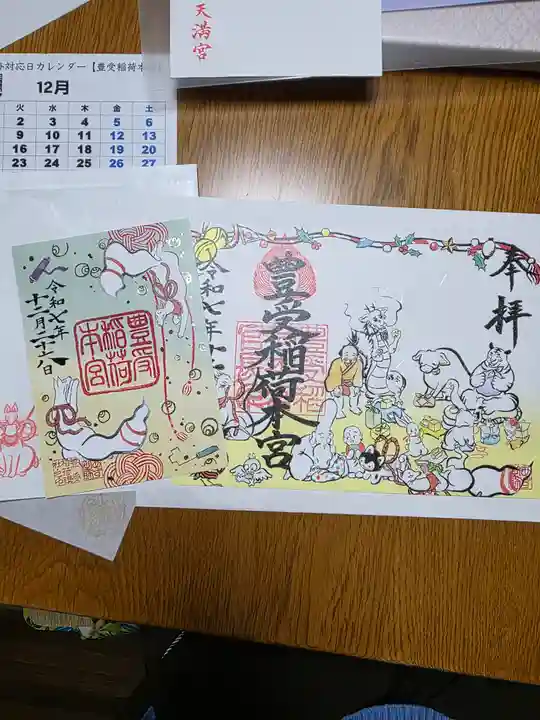 天満宮
対応日カレンダー【豊受稲荷本
12月
火 水 木 金 土
2 3 4 5 6
9 10 11 12 13
16 17 18 19 20
23 24 25 26 27
奉拝
豊受稲荷本宮
令和七年十二
豊受
稲荷
本宮
令和七年